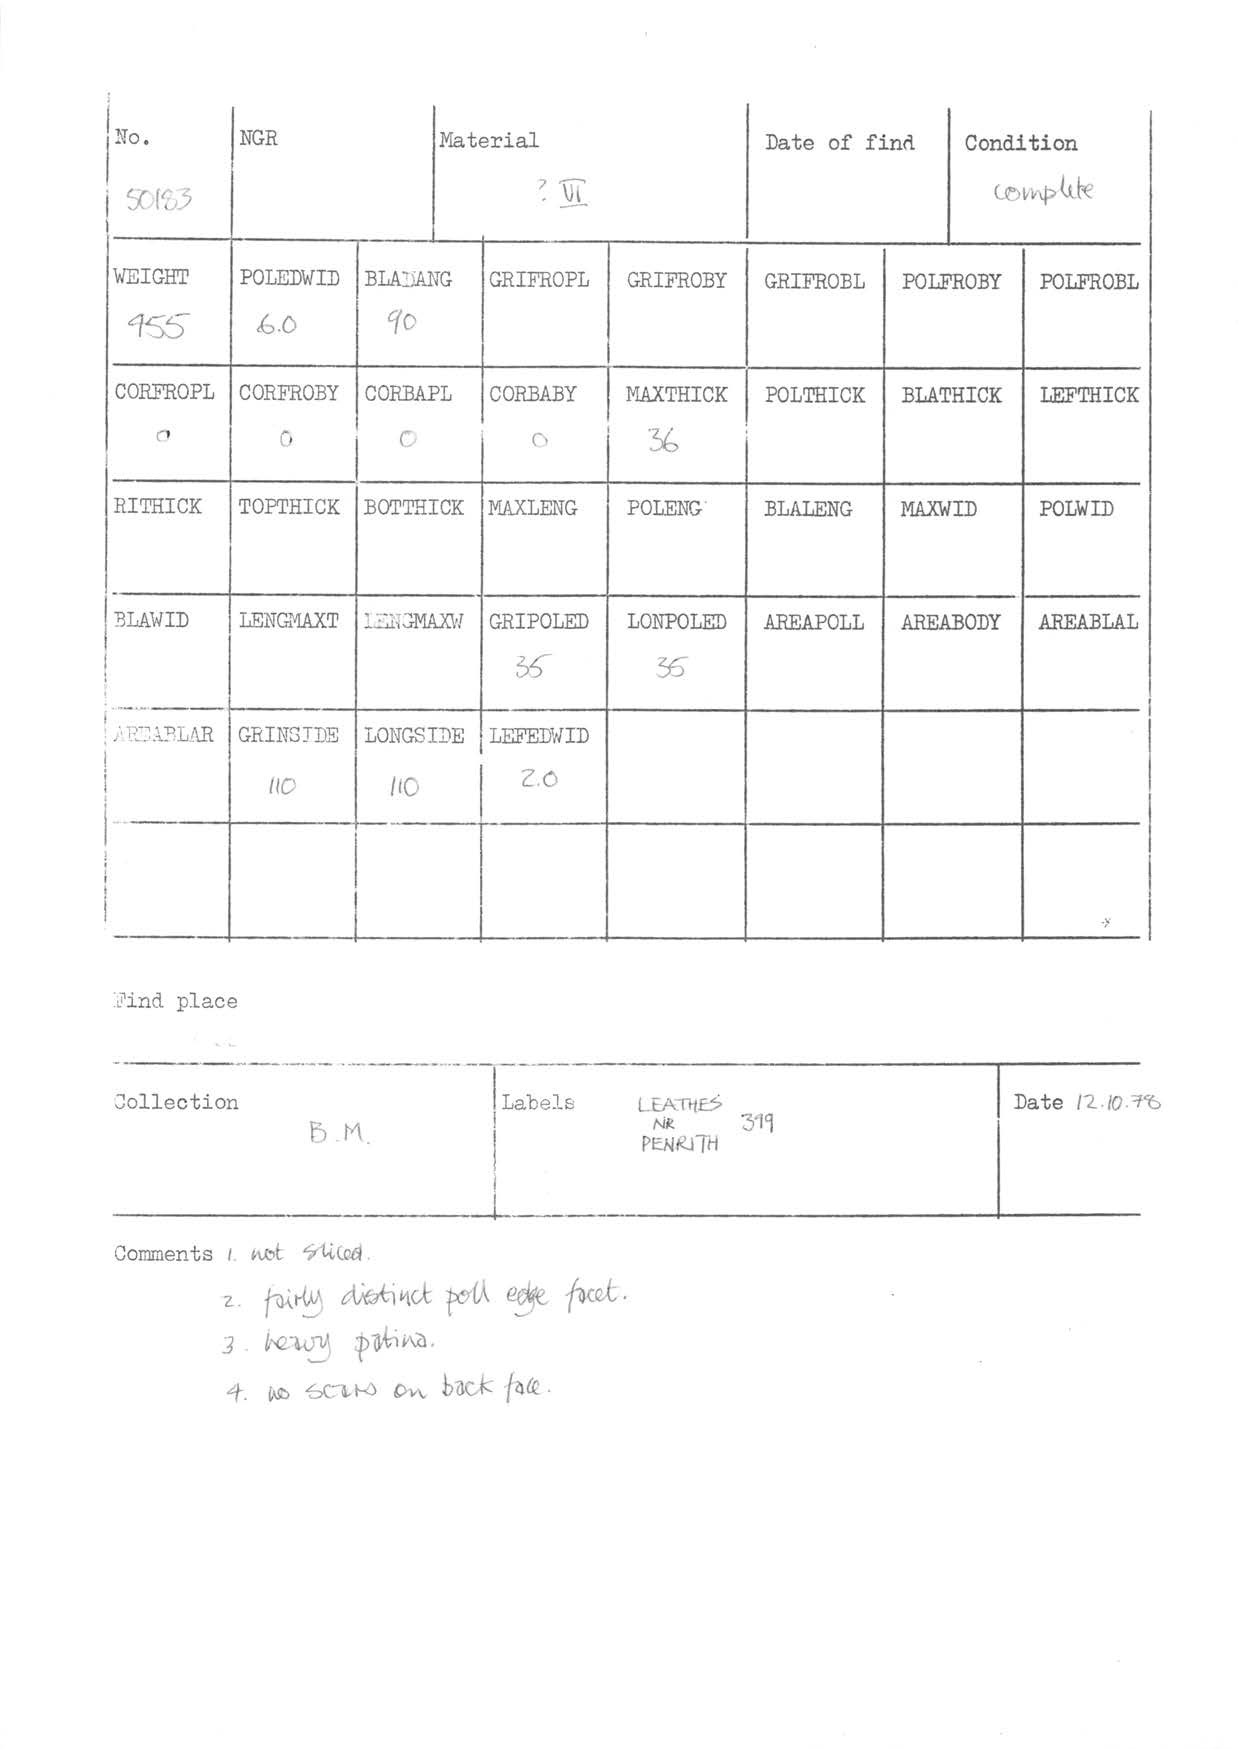 No. NGR Material Date of find Condition
50183 ? VI complete
WEIGHT POLEDWID BLADANG GRIFROPL GRIFROBY GRIFROBL POLFROBY POLFROBL
455 6.0 90
CORFROPL CORFROBY CORBAPL CORBABY MAXTHICK POLTHICK BLATHICK LEFTHICK
0 0 0 0 36
RITHICK TOPTHICK BOTTHICK MAXLENG POLENG BLALENG MAXWID POLWID
BLAWID LENGMAXT LENGMAXW GRIPOLED LONPOLED AREAPOLL AREABODY AREABLAL
35 35
AREABLAR GRINSIDE LONGSIDE LEFEDWID
110 110 2.0
Find place
Collection Labels LEATHES Date 12.10.78
B.M. NR 399
PENRITH
Comments 1. not sliced.
2. fairly distinct poll edge facet.
3. heavy patina.
4. no scars on back face.